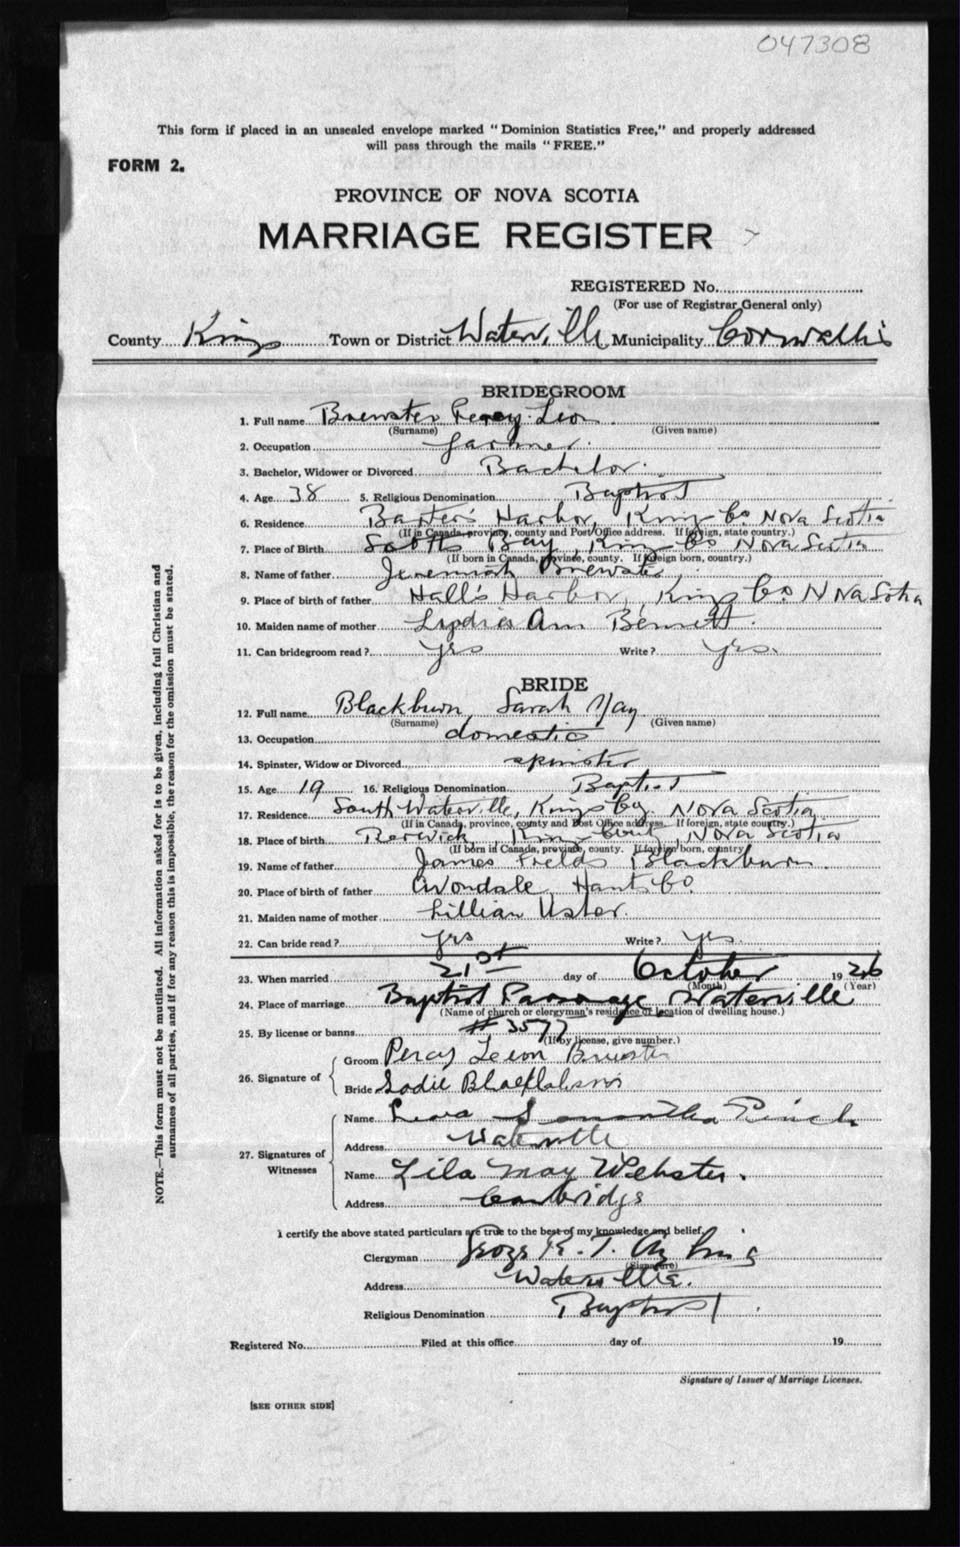 047308
This form if placed in an unsealed envelope marked "Dominion Statistics Free," and properly addressed
will pass through the mails "FREE."
FORM 2.
PROVINCE OF NOVA SCOTIA
MARRIAGE REGISTER
REGISTERED No.
(For use of Registrar General only)
County Kings Town or District Waterville Municipality Cornwallis
BRIDEGROOM
1. Full name Brewster Percy Leon
(Surname) (Given name)
2. Occupation farmer.
3. Bachelor, Widower or Divorced Bachelor.
4. Age 38 5. Religious Denomination Baptist
6. Residence Baxter's Harbor, Kings Co. Nova Scotia
(If in Canada, province, county and Post Office address. If foreign, state country.)
7. Place of Birth Scotts Bay, Kings Co Nova Scotia
(If born in Canada, province, county. If foreign born, country.)
8. Name of father Jeremiah Brewster
9. Place of birth of father Halls Harbor, Kings Co. Nova Scotia
10. Maiden name of mother Lydia Ann Bennett.
11. Can bridegroom read? yes Write? yes.
BRIDE
12. Full name Blackburn, Sarah May
(Surname) (Given name)
13. Occupation domestic
14. Spinster, Widow or Divorced spinster
15. Age 19 16. Religious Denomination Baptist
17. Residence South Waterville, Kings Co, Nova Scotia
(If in Canada, province, county and Post Office address. If foreign, state country.)
18. Place of birth Berwick, Nova Scotia
(If born in Canada, province, county. If foreign born, country
19. Name of father James Fields Blackburn.
20. Place of birth of father Avondale, Hants Co.
21. Maiden name of mother Lillian
22. Can bride read? yes Write? yes.
23. When married 21st day of October 1926
(Month) (Year)
24. Place of marriage Baptist Parsonage Waterville
(Name of church or clergyman's residence or location of dwelling house.)
25. By license or banns # 3577
(If by license, give number.)
26. Signature of
Groom Percy Leon Brewster
Bride Sadie
27. Signatures of
Witnesses
Name Samantha
Address Waterville
Name Lila May Webster.
Address Cambridge
I certify the above stated particulars are true to the best of my knowledge and belief.
Clergyman K. T.
(Signature)
Address Waterville.
Religious Denomination Baptist.
Registered No. Filed at this office day of 19
Signature of Issuer of Marriage Licenses.
[SEE OTHER SIDE]
NOTE.—This form must not be mutilated. All information asked for is to be given, including full Christian and
surnames of all parties, and if for any reason this is impossible, the reason for the omission must be stated.